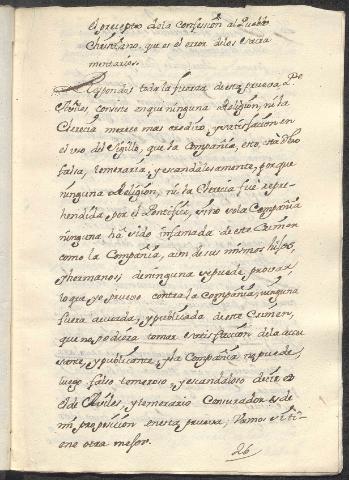 el precepto de la confession al Pueblo
Christiano, que es el error de los sacra
mentarios.
Respondo: toda la fuerza de esta prueva
consiste en q ninguna Religion, ni la
Clerecia merece mas credito, y satisfacion en
el uso del Sigillo, que la Compañia, esto, está dho
falsa, temeraria, y escandalosamente, porque
ninguna Religion, ni la Clerecia fue repre-
hendida por el Pontifice, sino sola la Compañia
ninguna ha sido infamada de este Crimen
como la Compañia, aun de sus mismos hijos,
y hermanos; de ninguna se puede provar,
lo que yo pruevo contra la Compañia, ninguna
fuera acusada, y publicada de este Crimen,
que no pudiera tomar satisfaccion del acu
sante, y publicante, y la Compañia no puede,
luego falso temeroso y escandaloso
el de Aviles, y temerario Censurador es de
mi proposicion en esta prueva; Vamos
otra mejor.
26